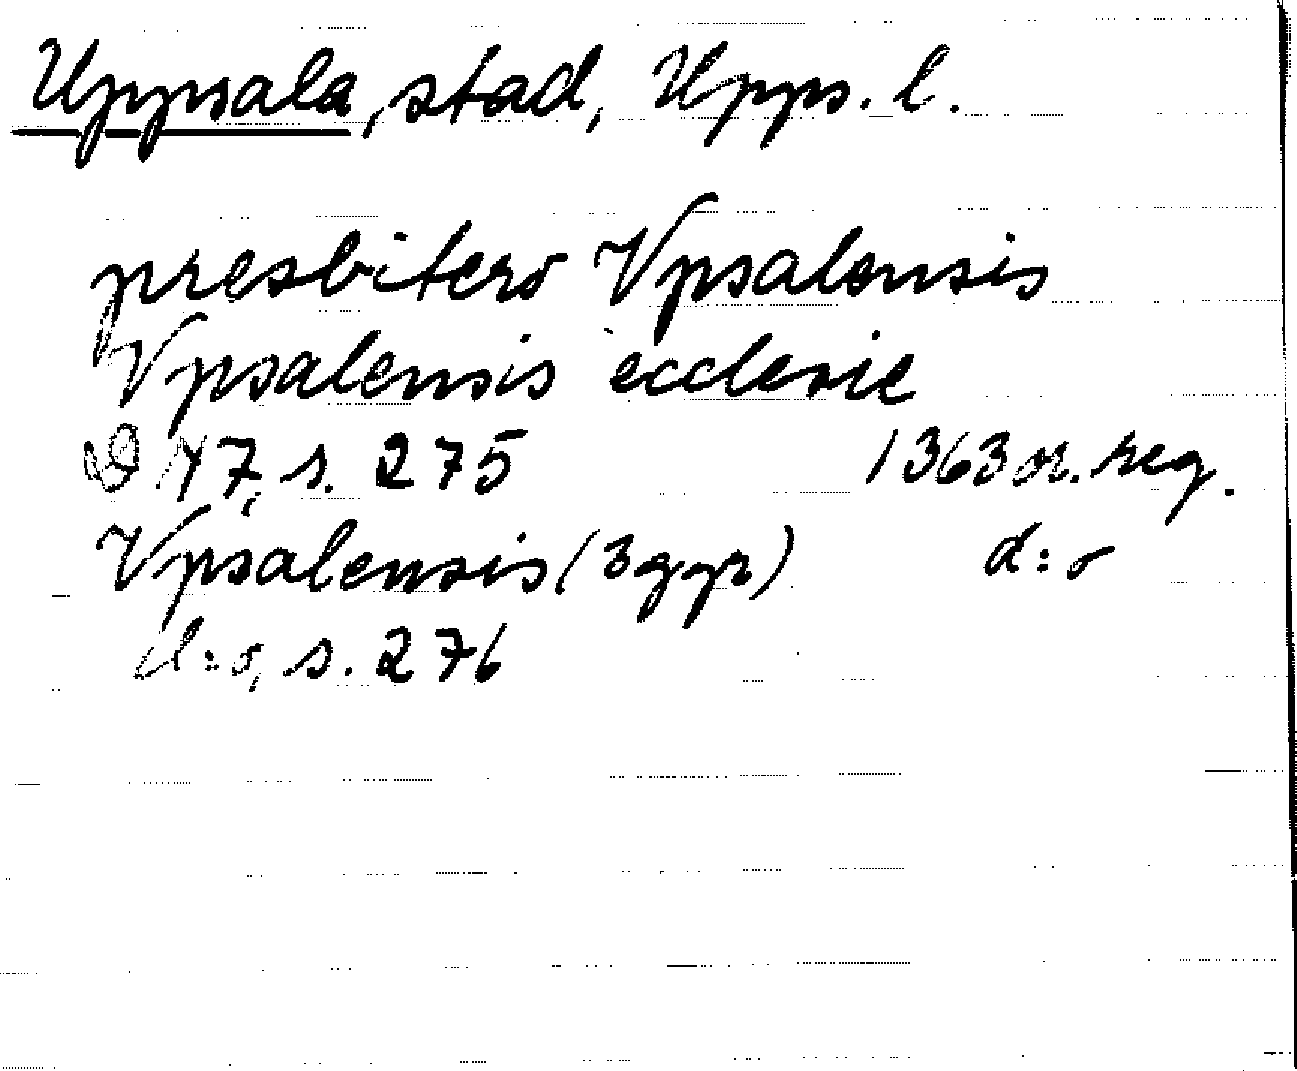 Uppsala, stad, Upps. l.
presbitero Vpsalensis
Vpsalensis ecclesie
D 17, s. 275 1363 or. reg.
Vpsalensis (3 ggr) d:o
d:o, s. 276